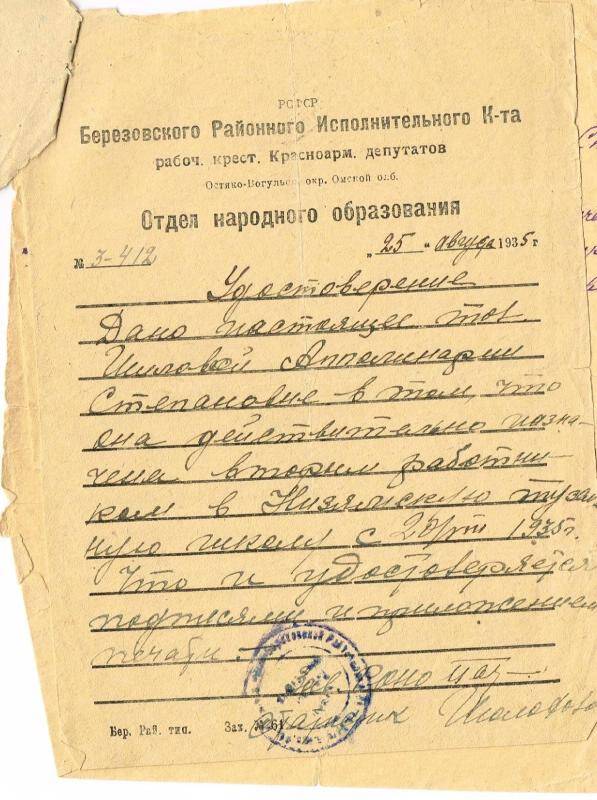 РСФСР
Березовского Районного Исполнительного К-та
рабоч. крест. Красноарм. депутатов
Остяко-Вогульск. окр. Омской обл.
Отдел народного образования
№ 3-412 „25" августа 1935 г
Удостоверение
Дано настоящее тов.
Шиловой Апполинарии
Степановне в том, что
она действительно назна-
чена вторым работни-
ком в
школу с 1935г.
Что и удостоверяется
подписями и приложением
печати.
Зав. Роно
Бер. Рай. тип. Зак. № 61